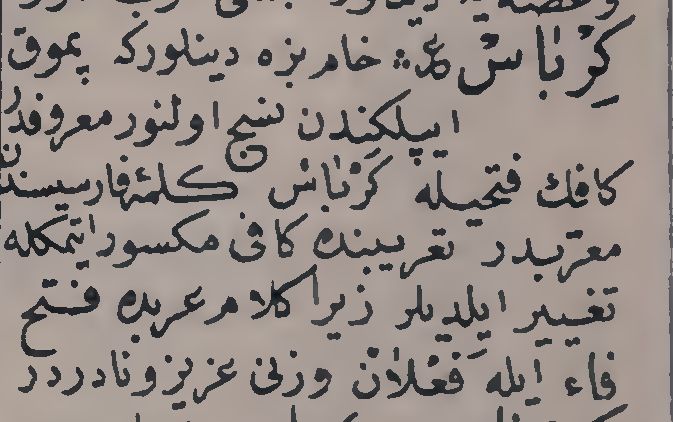 كِرْبَاسْ ع خام بزه دينلوركه پموق
ايپلكندن نسج اولنور معروفدر
كافك فتحيله كَرْبَاسْ كلمۀ فارسيسندن
معربدر تعريبنده كافى مكسور ايتمكله
تغيير ايلديلر زيرا كلام عربده فتح
فاء ايله فَعْلَانْ وزنى عزيز و نادردر